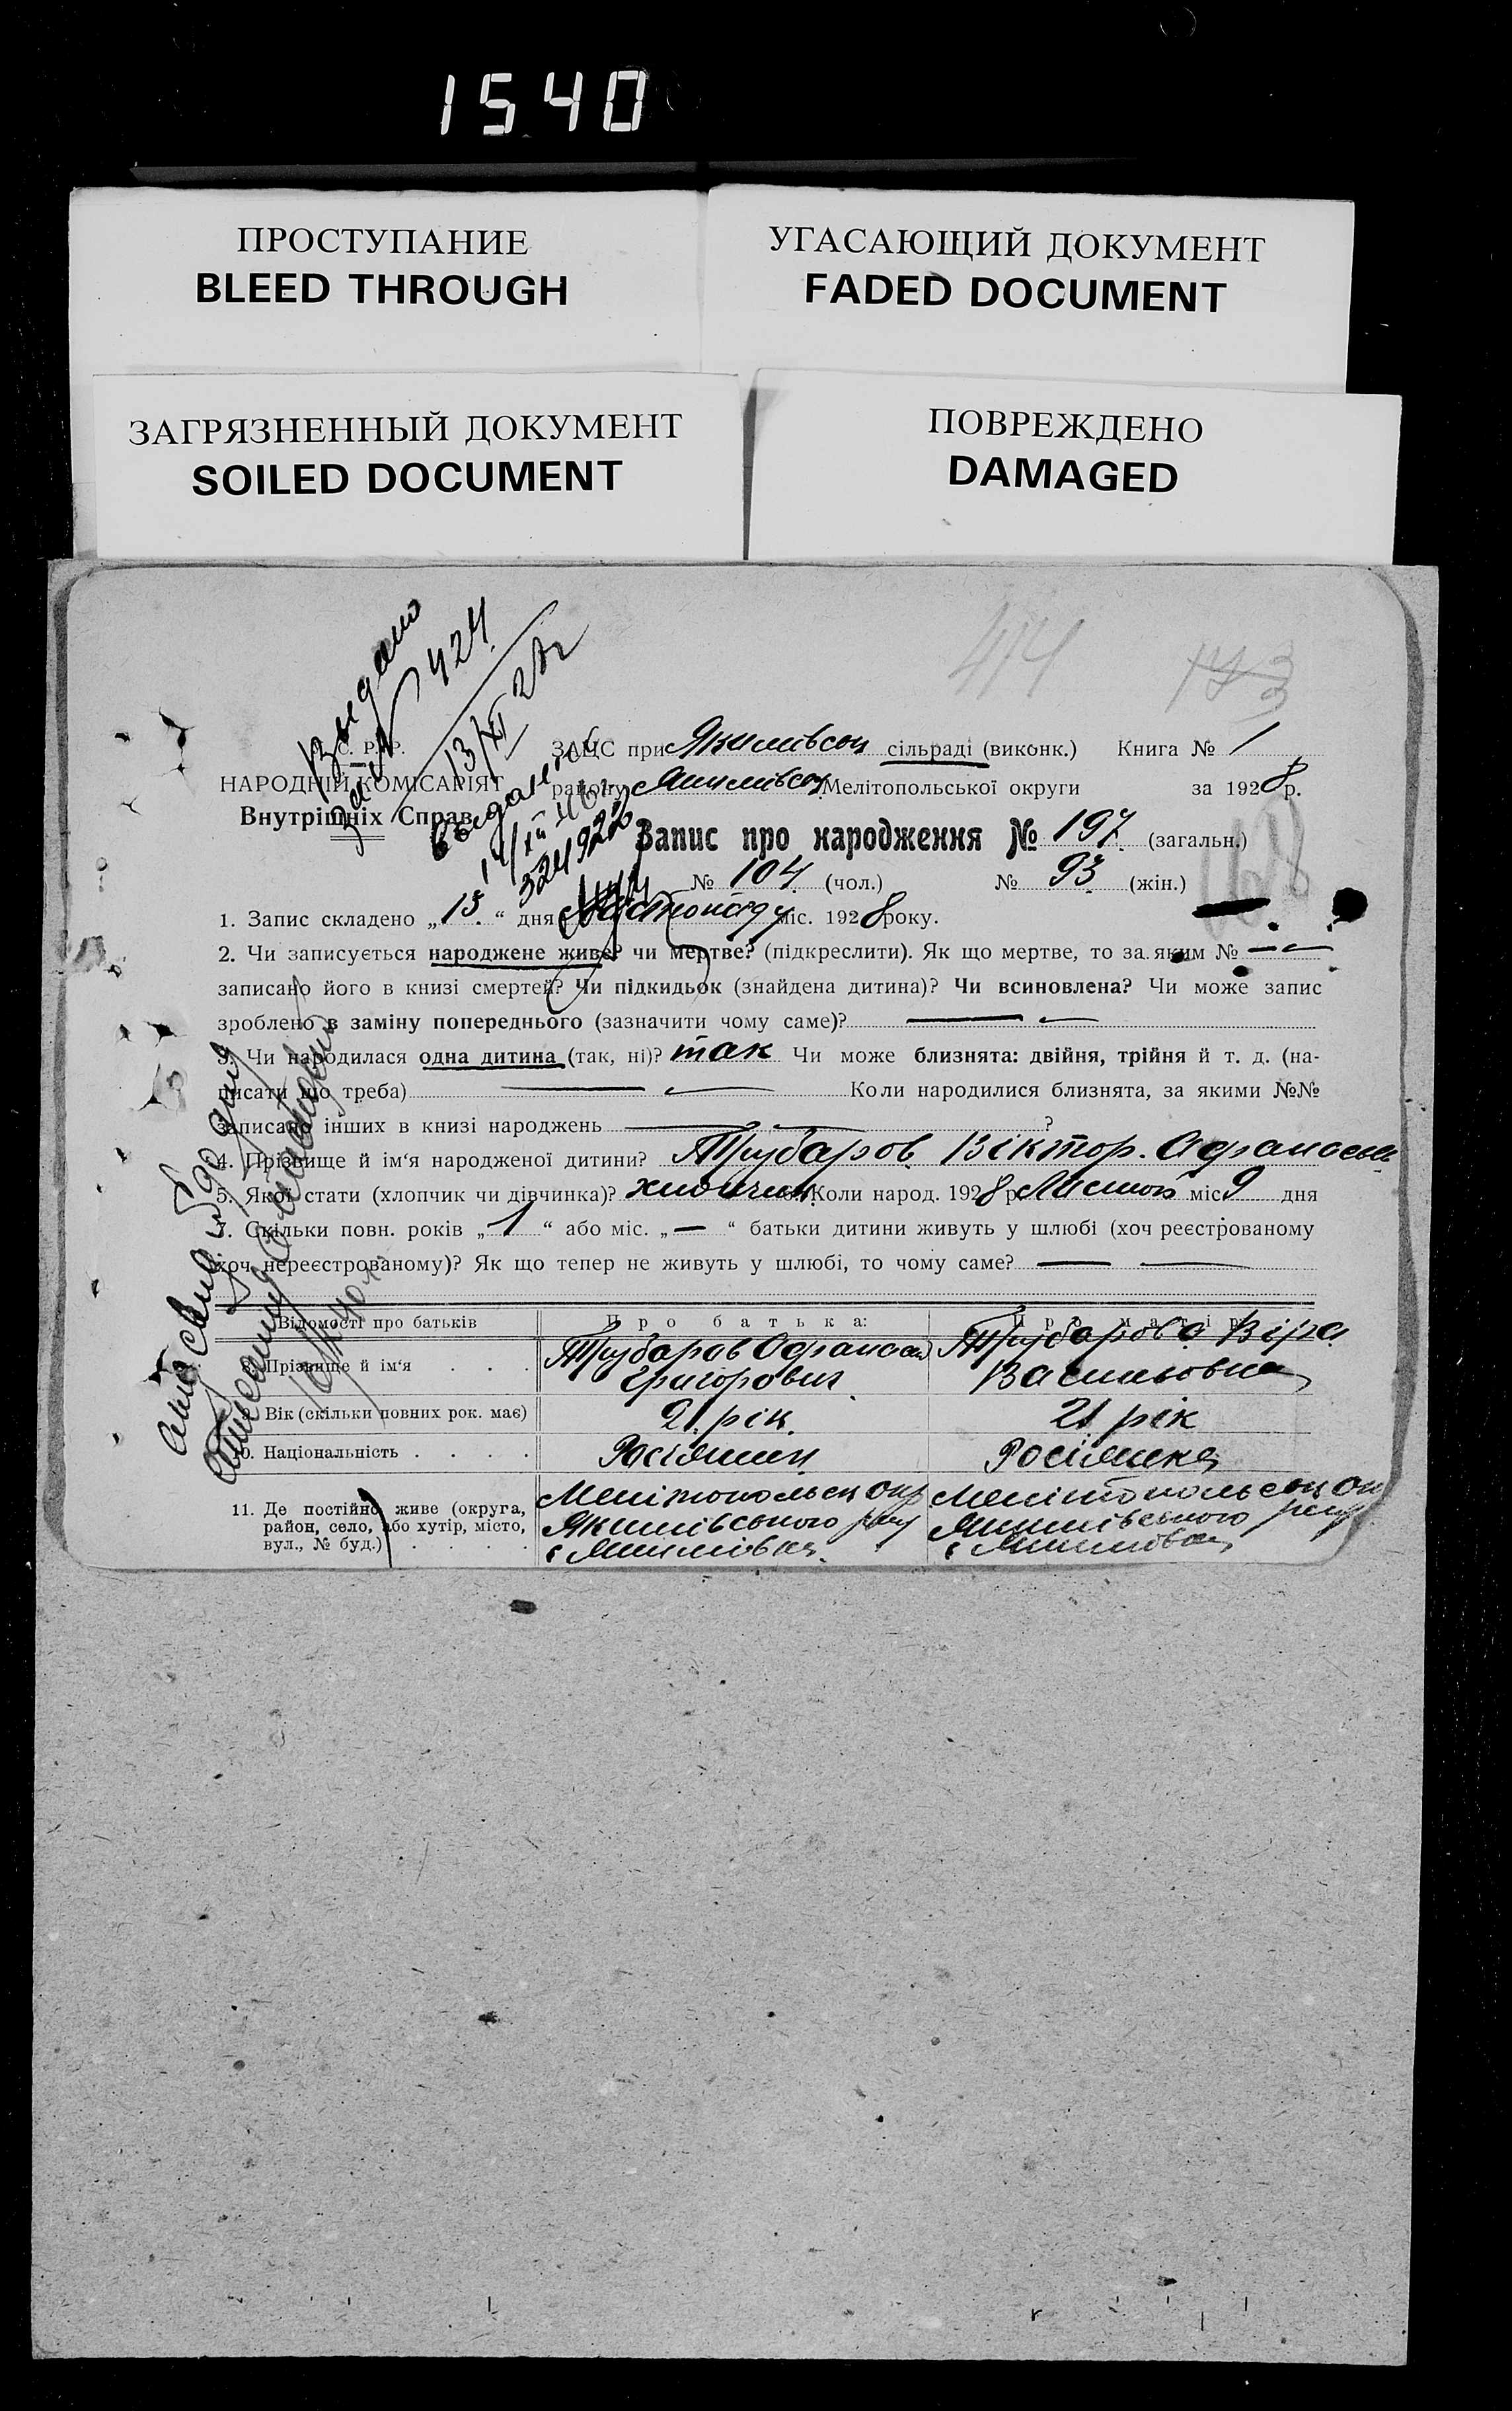 1540
ПРОСТУПАНИЕ
BLEED THROUGH
УГАСАЮЩИЙ ДОКУМЕНТ
FADED DOCUMENT
ЗАГРЯЗНЕННЫЙ ДОКУМЕНТ
SOILED DOCUMENT
ПОВРЕЖДЕНО
DAMAGED
414
Выдано
за № 424
13/XI 28 г
С. Р. Р.
НАРОДНІЙ КОМІСАРІЯТ
Внутрішніх Справ
ЗАЦС при Якимівськ сільраді (виконк.) Книга № 1
району Якимівськ Мелітопольської округи за 1928 р.
Запис про народження № 197 (загальн.)
№ 104 (чол.) № 93 (жін.)
1. Запис складено „13“ дня Листопаду міс. 1928 року.
2. Чи записується народжене живе? чи мертве? (підкреслити). Як що мертве, то за яким № —
записано його в книзі смертей? Чи підкидьок (знайдена дитина)? Чи всиновлена? Чи може запис
зроблено в заміну попереднього (зазначити чому саме)? —
3. Чи народилася одна дитина (так, ні)? так Чи може близнята: двійня, трійня й т. д. (на-
писати що треба) — Коли народилися близнята, за якими №№
записано інших в книзі народжень — ?
4. Прізвище й ім‘я народженої дитини? Трубаров Віктор Афанасьев
5. Якої стати (хлопчик чи дівчинка)? хлопчик Коли народ. 1928 р. Листоп міс 9 дня
7. Скільки повн. років „1“ або міс. „—“ батьки дитини живуть у шлюбі (хоч реєстрованому
хоч нереєстрованому)? Як що тепер не живуть у шлюбі, то чому саме? — —
Відомості про батьків
Про батька:
Про матір
8. Прізвище й ім‘я . . .
Трубаров Афанасий
Григорович
Трубарова Віра
Васильовна
9. Вік (скільки повних рок. має)
21 рік
21 рік
10. Національність . . . .
Росіянин
Росіянка
11. Де постійно живе (округа,
район, село, або хутір, місто,
вул., № буд.) . . . .
Мелітопольськ окр
Якимівського рай
с Якимівка
Мелітопольськ ок
Якимівського рай
с Якимівка